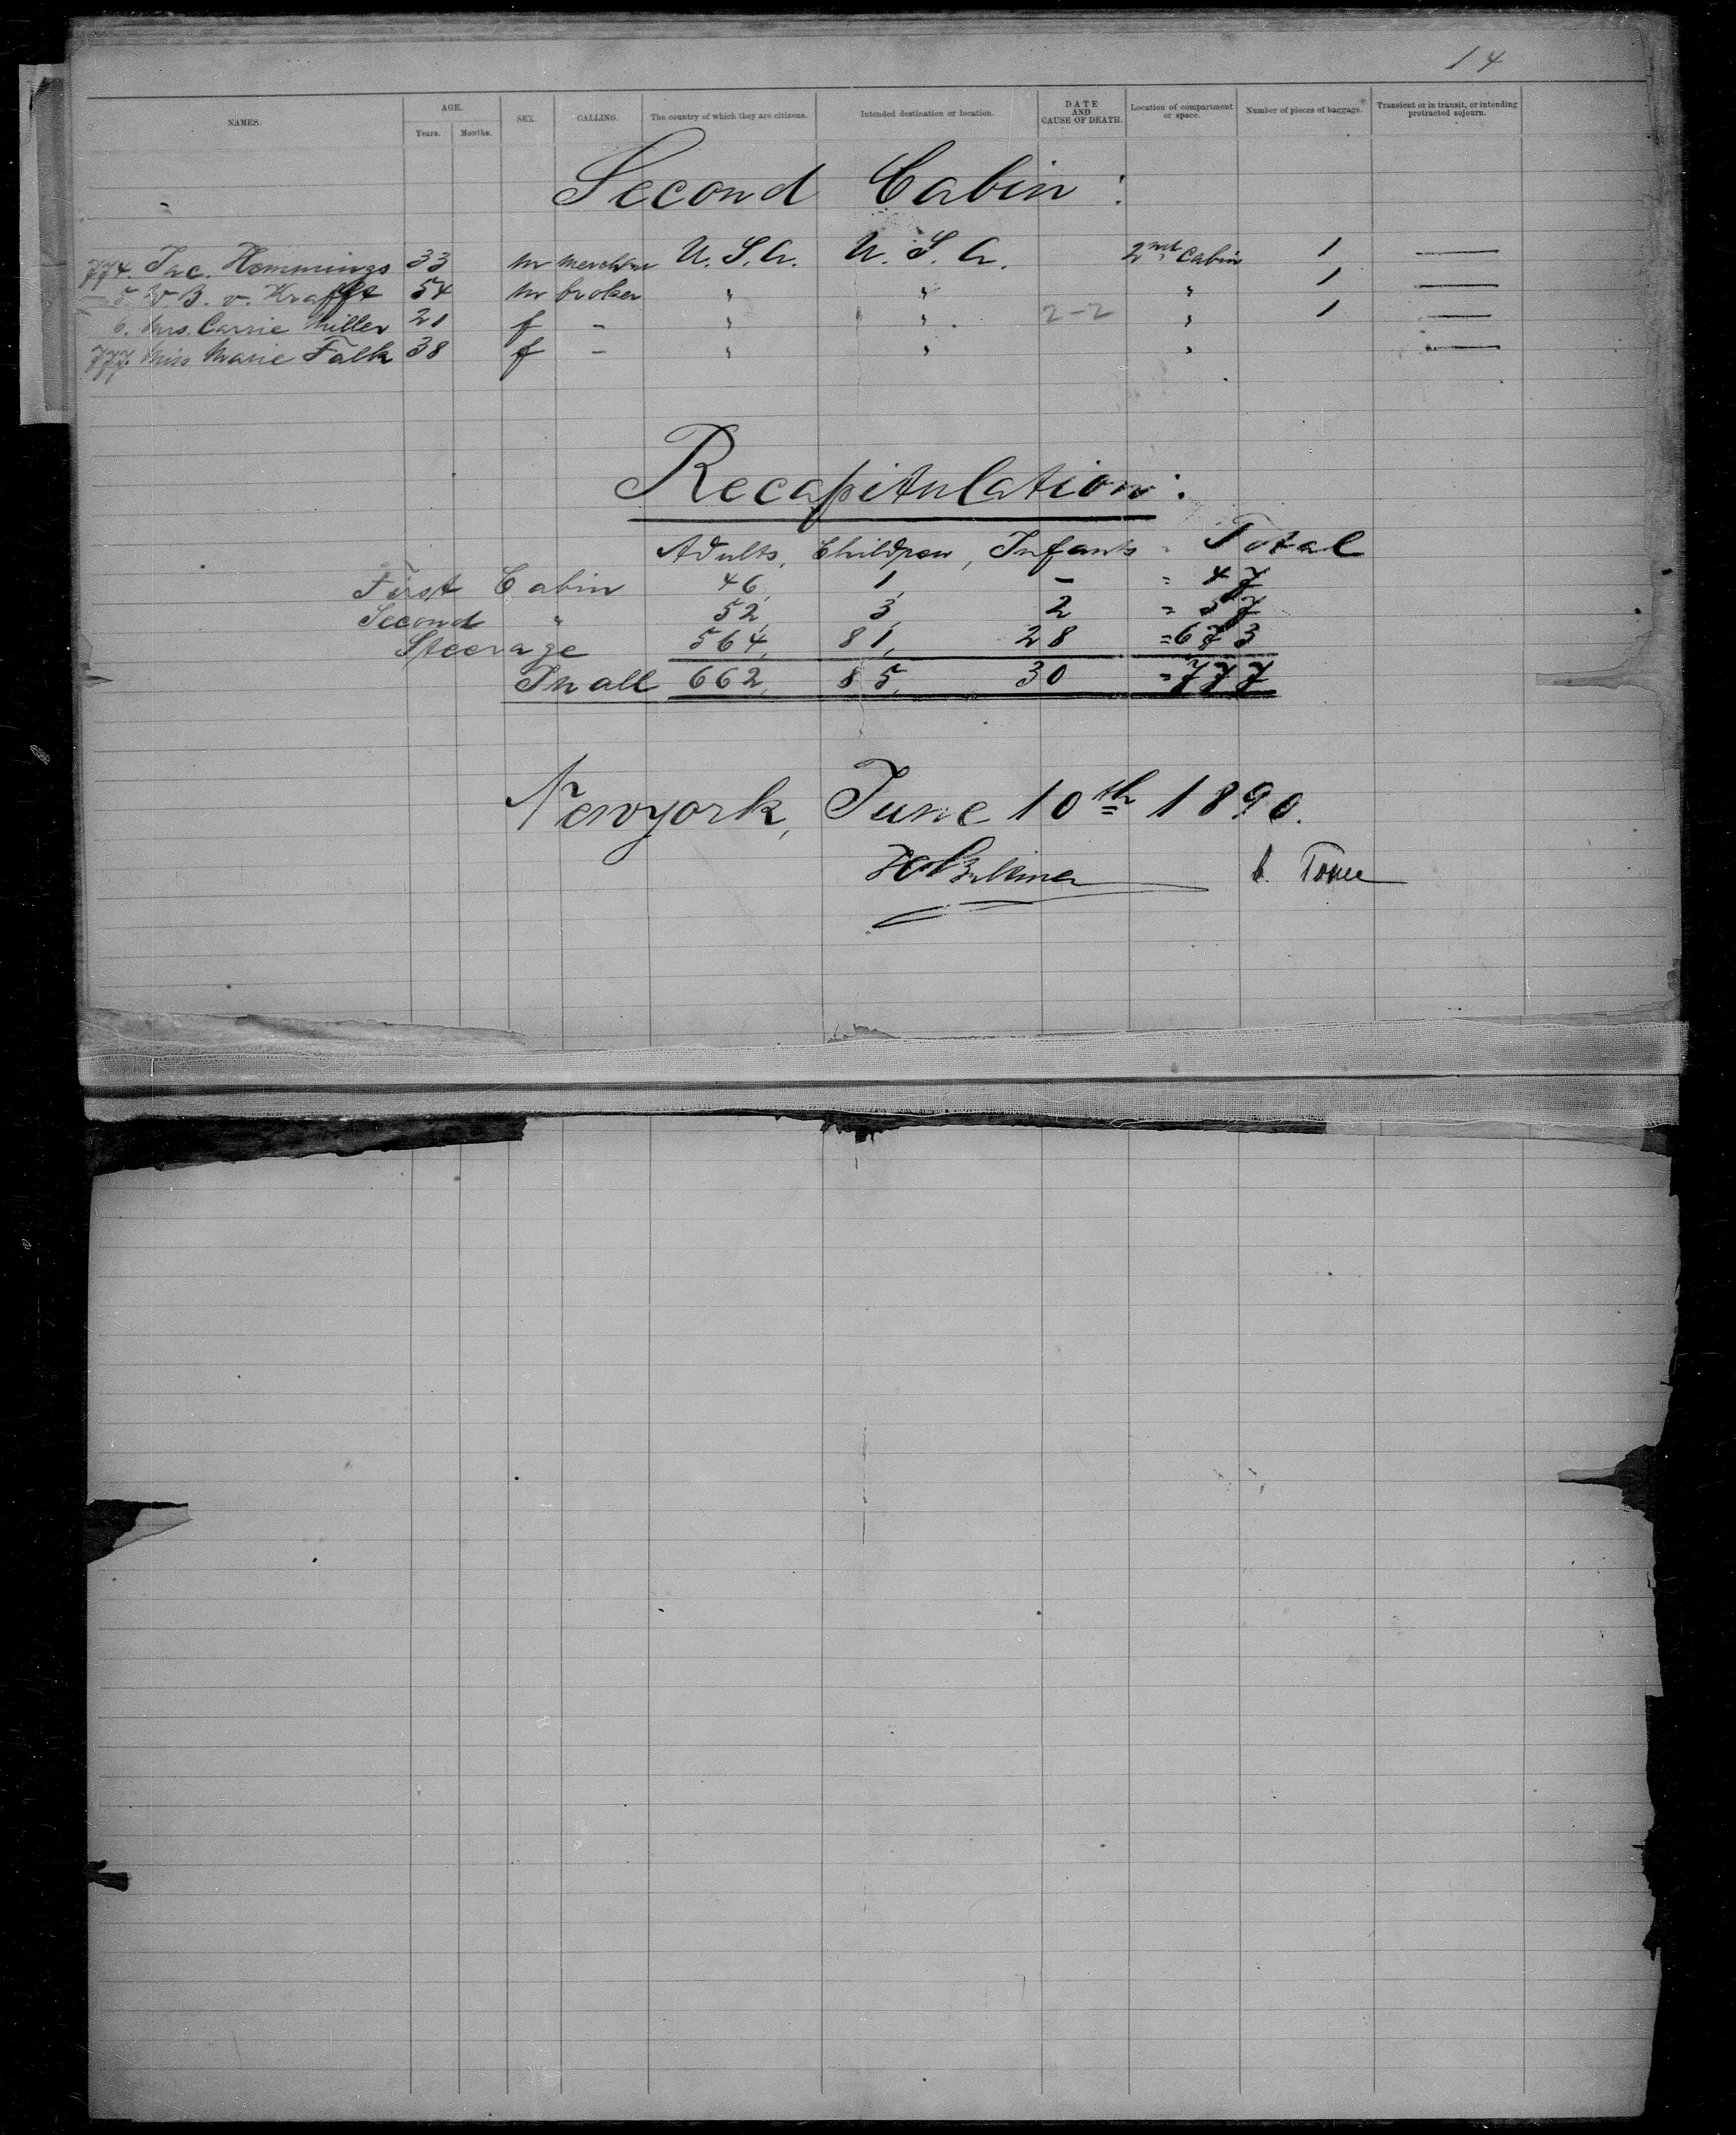 14
NAMES. AGE. Years. Months. SEX. CALLING. The country of which they are citizens. Intended destination or location. DATE AND CAUSE OF DEATH. Location of compartment or space. Number of pieces of baggage. Transient or in transit, or intending protracted sojourn.
Second Cabin :
774. Jac. Hemmings 33 m merchan U. S. A. U. S. A. 2nd Cabin 1 —
5 W B. v. Krafft 54 m broker " " " 1 —
6. Mrs. Carrie Miller 21 f – " " . 2-2 " 1 —
777. Miss Marie Falk 38 f – " " " —
Recapitulation :
Adults, Children, Infants = Total
First Cabin 46, 1, – = 47
Second " 52, 3, 2 = 57
Steerage 564, 81, 28 = 673
In all 662, 85, 30 = 777
Newyork, June 10th 1890.